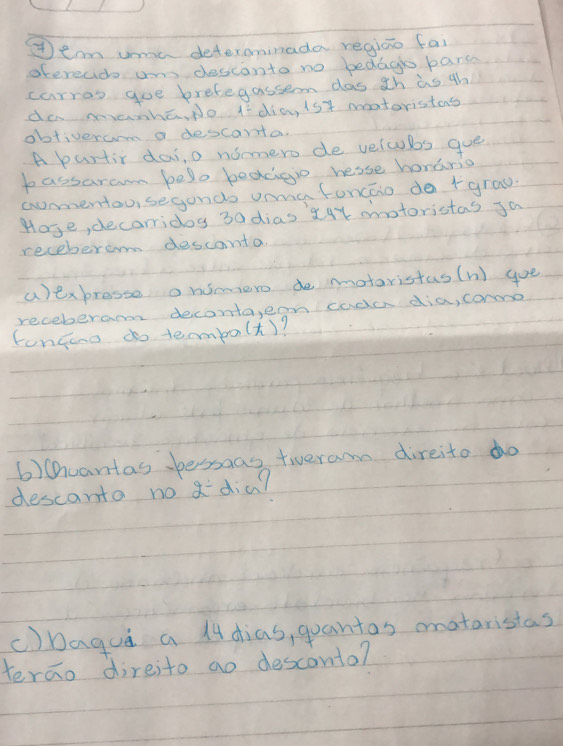 7) Em uma determinada região foi
oferecido um desconto no pedágio para
carros que trefegassem das 2h às 4h
da manhã, No 1º dia, 157 motoristas
obtiveram o desconto.
A partir daí, o número de veículos que
passaram pelo pedágio nesse horário
aumentou, segundo uma função do 1 grau.
Hoje, decorridos 30 dias 247 motoristas já
receberam desconto.
a) expresse o número de motoristas (n) que
receberam deconto, em cada dia, como
função do tempo (t)?
b) Quantas pessoas tiveram direito ao
desconto no 2º dia?
c) Daqui a 14 dias, quantos motoristas
terão direito ao desconto?